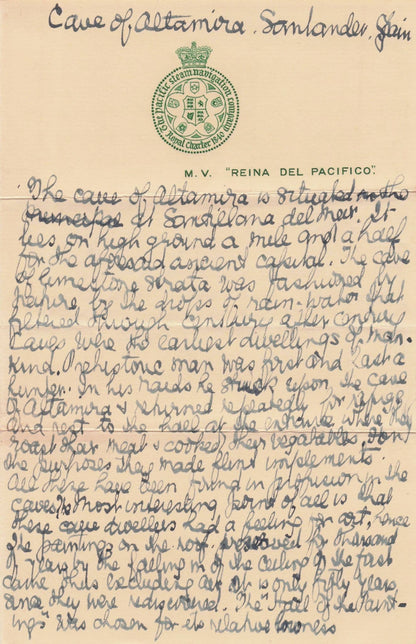 Cave of Altamira. Santander. Spain
The Pacific Steam Navigation Company
Royal Charter 1840
M. V. "REINA DEL PACIFICO".
The cave of Altamira is situated in the
at Santillana del Mar. It
lies on high ground a mile and a half
for the aforesaid ancient capital. The cave
of limestone strata was fashioned by
nature by the drops of rain-water that
filtered through century after century
Caves were the earliest dwellings of man-
kind. Prehistoric man was first and last a
hunter. In his raids he struck upon the cave
of Altamira & returned repeatedly for refuge
and rest to the hall at the entrance. There they
roast their meal & cooked their vegetables. For
the purposes they made flint implements.
All these have been found in profusion in the
caves. The most interesting point of all is that
these cave dwellers had a feeling for art, hence
the paintings on the roof, preserved for thousand
of years by the falling in of the ceiling of the fast
cave thus excluding air. It is only fifty years
since they were rediscovered. The "Hall of the Paint-
ings" was chosen for its relative lowness